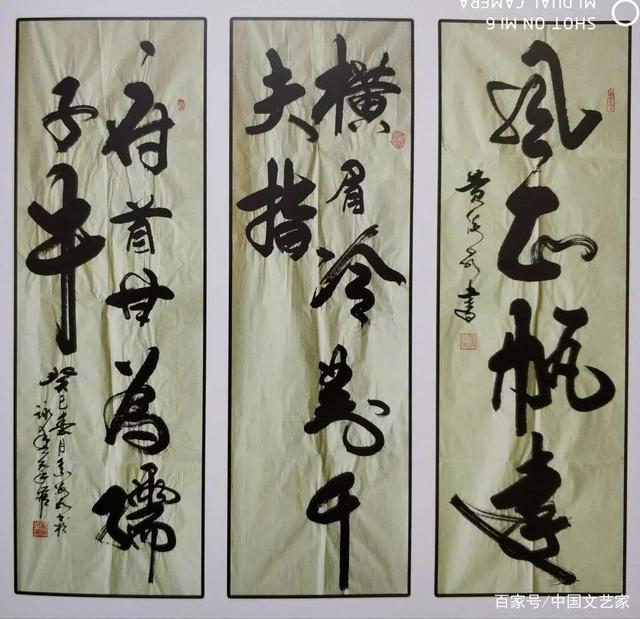 SHOT ON MI 6
MI DUAL CAMERA
风正帆遠
書
横眉冷對千
夫指
俯首甘為孺
子牛
癸巳 月
百家号/中国文艺家